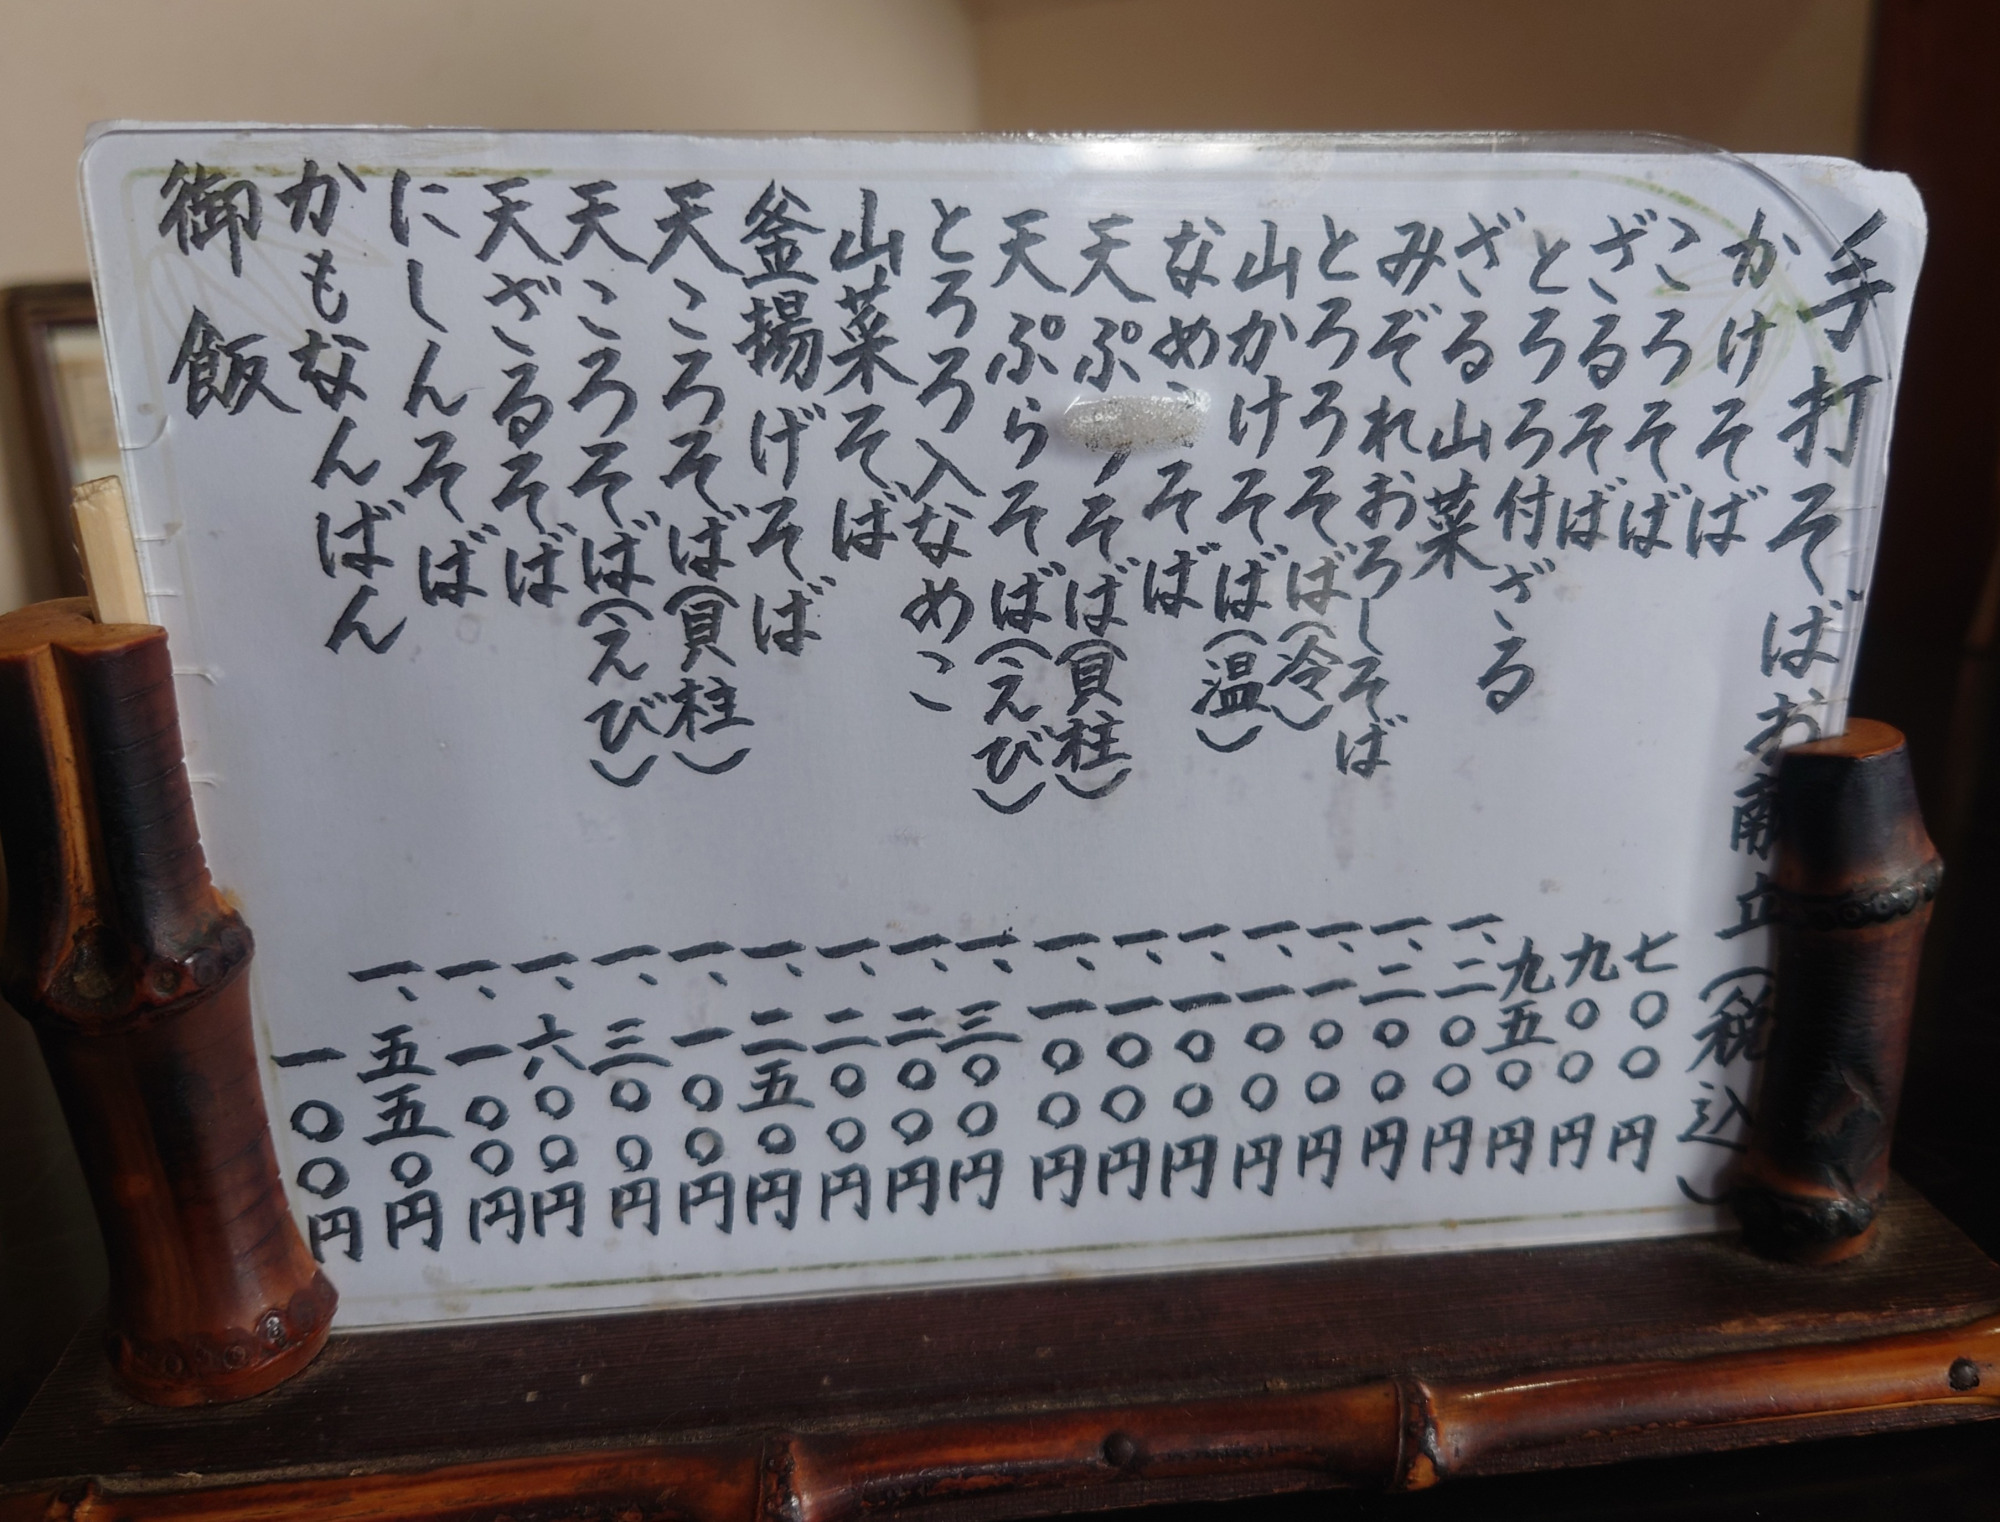 手打そばお献立(税込)
かけそば 七〇〇円
ころそば 九〇〇円
ざるそば 九五〇円
とろろ付ざる 一、二〇〇円
ざる山菜 一、二〇〇円
みぞれおろしそば 一、一〇〇円
とろろそば(冷) 一、一〇〇円
山かけそば(温) 一、一〇〇円
なめこそば 一、一〇〇円
天ぷらそば(貝柱) 一、一〇〇円
天ぷらそば(えび) 一、三〇〇円
とろろ入なめこ 一、二〇〇円
山菜そば 一、二〇〇円
釜揚げそば 一、二五〇円
天ころそば(貝柱) 一、一〇〇円
天ころそば(えび) 一、三〇〇円
天ざるそば 一、六〇〇円
にしんそば 一、一〇〇円
かもなんばん 一、五五〇円
御飯 一〇〇円